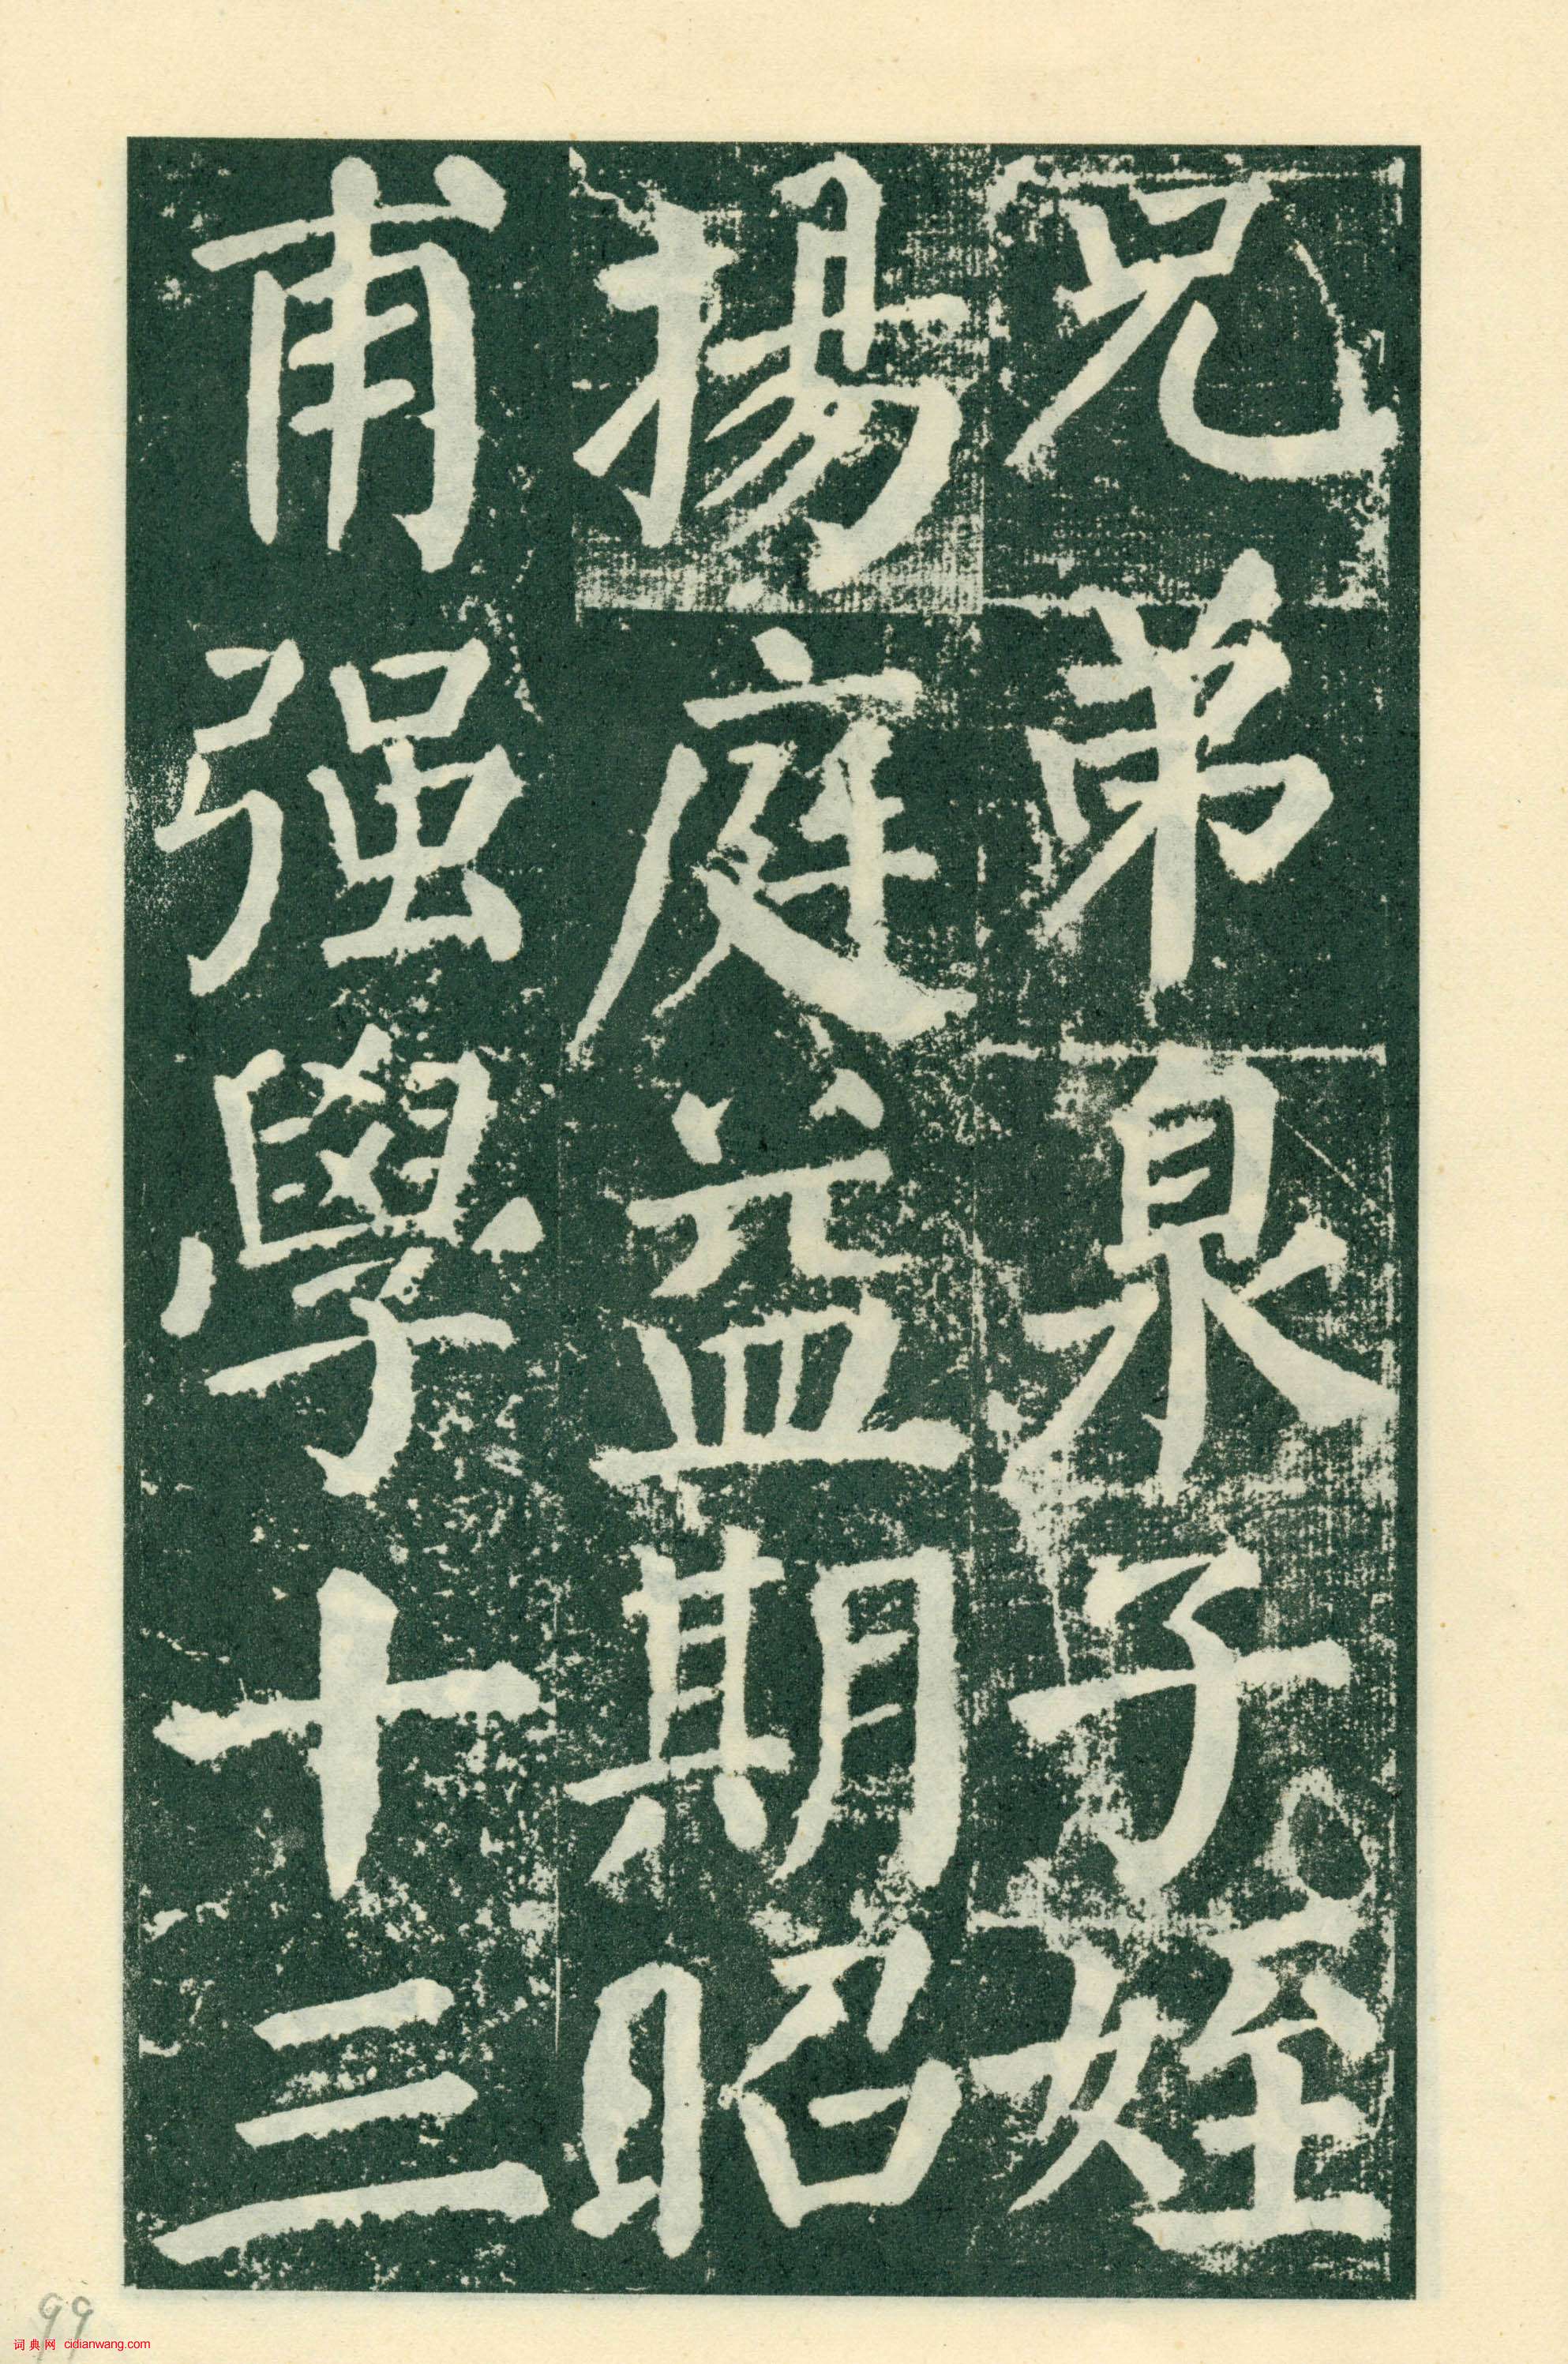 兄弟泉子姪
揚庭益期昭
甫强學十三
99
词典网 cidianwang.com